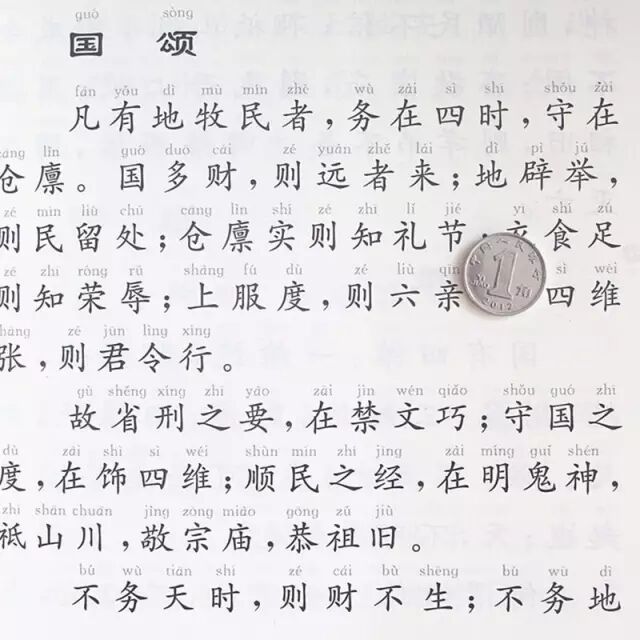 guó sòng
国颂
fán yǒu dì mù mín zhě wù zài sì shí shǒu zài
凡有地牧民者，务在四时，守在
cāng lǐn guó duō cái zé yuǎn zhě lái dì pì jǔ
仓廪。国多财，则远者来；地辟举，
zé mín liú chǔ cāng lǐn shí zé zhī lǐ jié yī shí zú
则民留处；仓廪实则知礼节；食足
zé zhī róng rǔ shàng fú dù zé liù qīn sì wéi
则知荣辱；上服度，则六亲四维
zhāng zé jūn lìng xíng
张，则君令行。
gù shěng xíng zhī yào zài jìn wén qiǎo shǒu guó zhī
故省刑之要，在禁文巧；守国之
dù zài shì sì wéi shùn mín zhī jīng zài míng guǐ shén
度，在饰四维；顺民之经，在明鬼神，
zhī shān chuān jìng zōng miào gōng zǔ jiù
祗山川，敬宗庙，恭祖旧。
bú wù tiān shí zé cái bù shēng bú wù dì
不务天时，则财不生；不务地
1